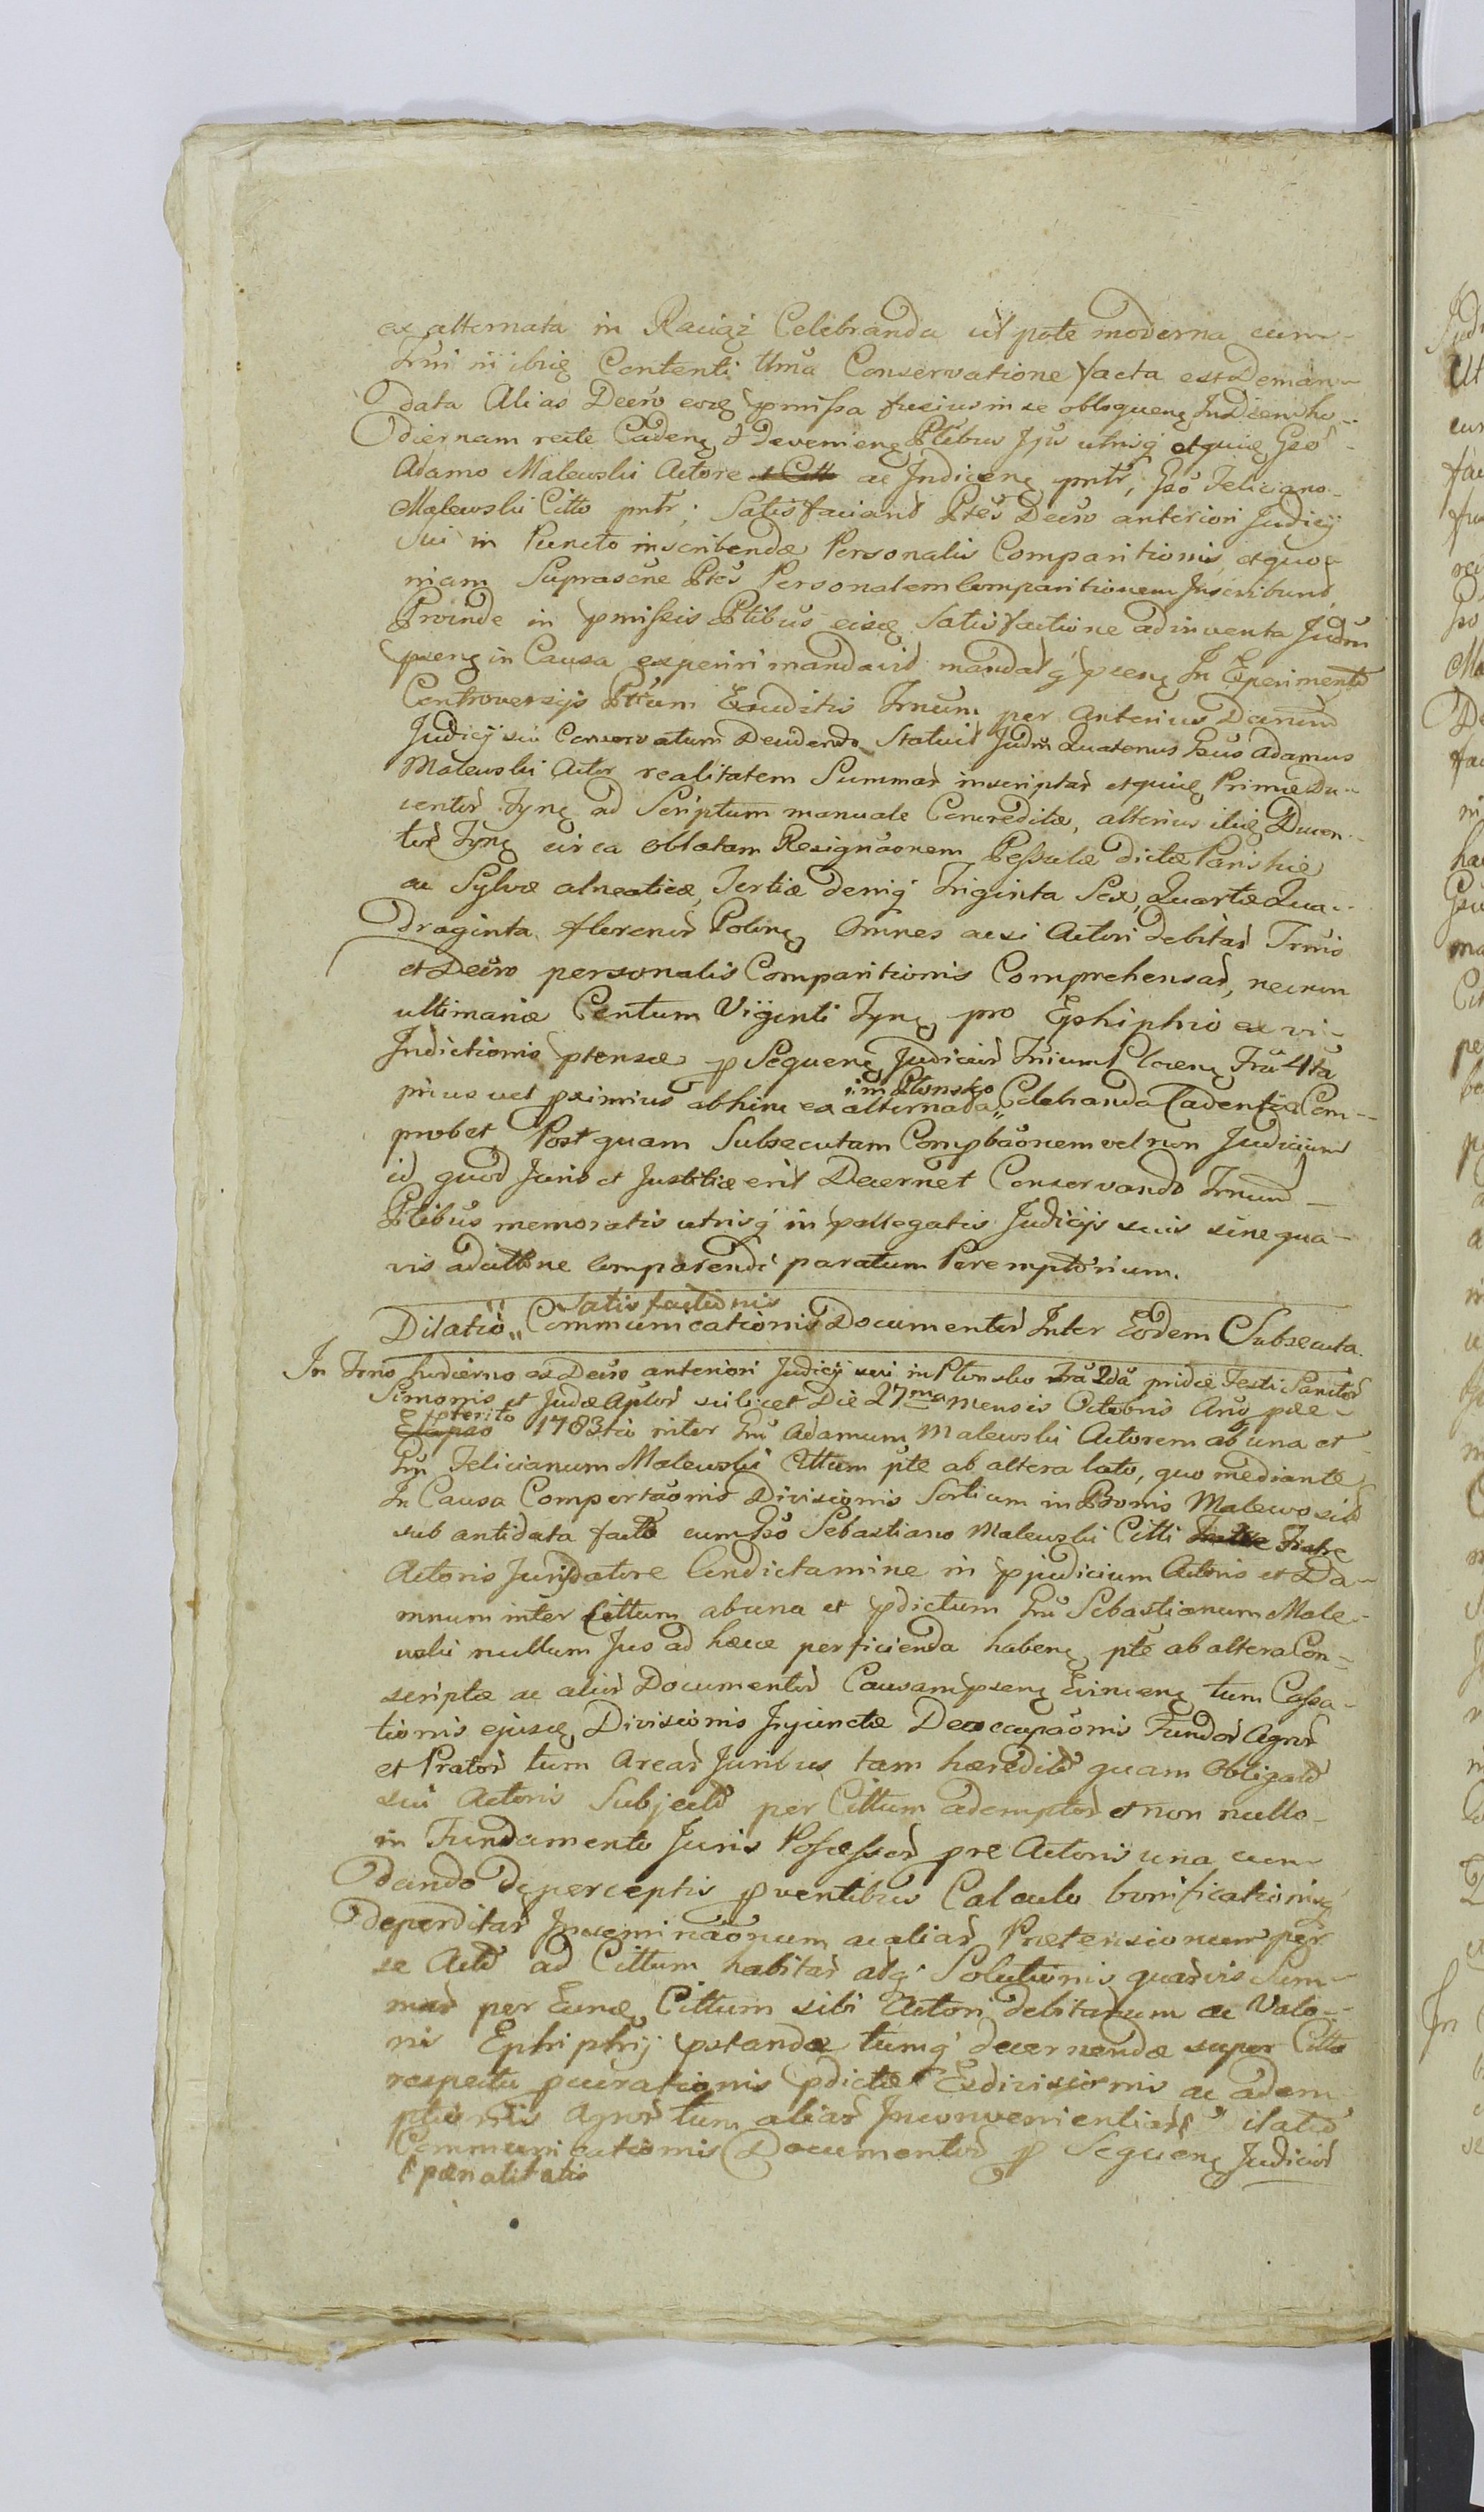 ex alternata in Raciąż Celebranda ut pote moderna cum
Trni ibiq Contenti Conservatione facta est Deman-
data Alias Decro eoq pmissa fusius in se obloquenq In Diem ho-
diernam recte Cadenq & Devenienq Ptibus Jpis utrisq etquiq Gso
Adamo Malewski Actore ac Indicenq pntr, Gso Feliciano
Malewski Citto pntr; Satisfaciend Ptes Decro anteriori Judicij
sui in Puncto inscribendæ Personalis Comparitionis, et quo-
niam Suprascne Ptes Personalem Comparitionem Inscribund,
Proinde in pmissis Ptibus eisq Satisfactione adinventa Judm
psenq in Causa experiri mandavit mandatq psenq In Experimento
Controversijs Ptium Exuditis Trnum per anterius Decrum
Judicij sui Conservatum Deudendo Statuit Judm Quatenus Gsus Adamus
Malewski Actor realitatem Summar inscriptar etquiq Primæ Du-
centor Tynq ad Scriptum manuale Concreditæ, alterius itiq Ducen-
tor Tynq circa oblatam Resignaonem Pessulæ dictæ Parishie
ac Sylvæ alneaticæ, Tertiæ deniq Triginta Sex, Quartæ Qua-
draginta florenor Polonq Omnes acsi Actori debitar Trnis
et Decro personalis Comparitionis Comprehensar, necnon
ultimariæ Centum Viginti Tynq pro Ephiphio ex vi
Indictionis ptensæ p Sequenq Judicior Trium Locenq Fra 4ta
prius vel pximius abhinc ex alternada „in Płonsko„ Celebranda Cadentia Com-
probet. Post quam Subsecutam Compbaonem vel non Judicium
id quod Juris et Justitiæ erit Decernet Conservando Trnum
Ptibus memoratis utrisq in pallegatis Judicijs suis sine qua-
vis adcittone comparendi paratum Peremptorium.
Satisfactionis
Dilatio „ Communicationis Documentor Inter Eosdem Subsecuta.
In Trno hodierno ex Decro anteriori Judicij sui in Płonsko Fra 2da pridie Festi Sanctor
Simonis et Judæ Aptor scilicet Die 27ma mensis Octobris Ano præ-
pterito
Elapso 1783tio inter Gsu Adamum Malewski Actorem ab una et
Gsu Felicianum Malewski Cittum pte ab altera lato, quo mediante
In Causa Comportaonis Divisionis Sortium in Bonis Malewo sit
sub antidata facto cum Gso Sebastiano Malewski Citti Fratre
Actoris Juridatore Condictamine in pjudicium Actoris et Da-
mnum inter Cittum ab una et pdictum Gsu Sebastianum Male-
wski nullum Jus ad hæc perficienda habenq pte ab altera Con-
scriptæ ac alior Documentor Causam psenq Evincenq tum Cassa-
tionis ejusq Divisionis Injunctæ Deoccupaonis Fundor Agror
et Prator tum Arear Juribus tam hæredit quam Obligat
sui Actoris Subject per Cittum ademptor et non nullo
in Fundamento Juris Possessor pre Actoris una cum
dando de perceptis pventibus Calculo bonificationisq
deperditar Inseminaonum ac aliar Prætensionum per
se Act ad Cittum habitar atq Solutionis quarvis Sum-
mar per Eunq Cittum sibi Actori debitarum ac Valo-
ris Ephiphij pstandæ tumq decernendæ super Citto
respectu pcurationis pdictæ Exdivisionis ac adem-
ptionis Agror tum aliar Inconvenientiar Dilatio
Communicationis Documentor p Sequenq Judicior
pænalitatis